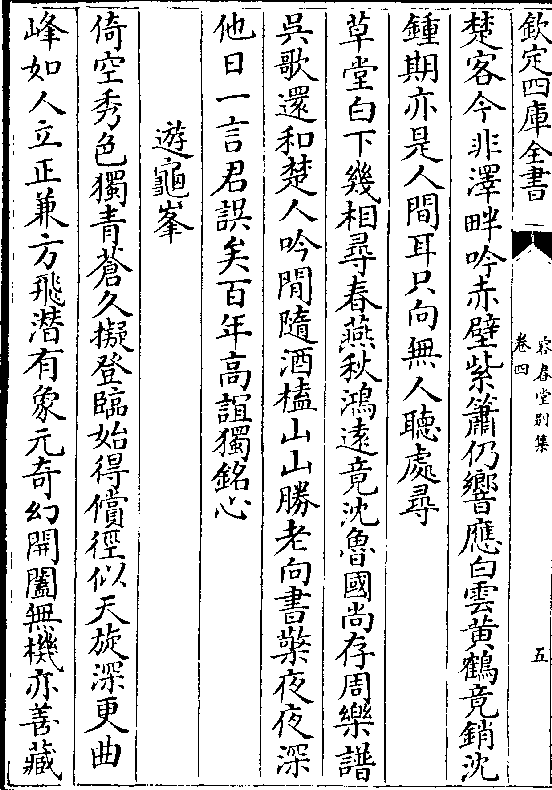 欽定四庫全書
容春堂別集
卷四
五
楚客今非澤畔吟赤壁紫簫仍響應白雲黄鶴竟銷沈
鍾期亦是人間耳只向無人聽處尋
草堂白下幾相尋春燕秋鴻遠竟沈魯國尚存周樂譜
吳歌還和楚人吟閒隨酒榼山山勝老向書檠夜夜深
他日一言君誤矣百年高誼獨銘心
遊龜峯
倚空秀色獨青蒼久擬登臨始得償徑似天旋深更曲
峰如人立正兼方飛潛有象元奇幻開闔無機亦善藏